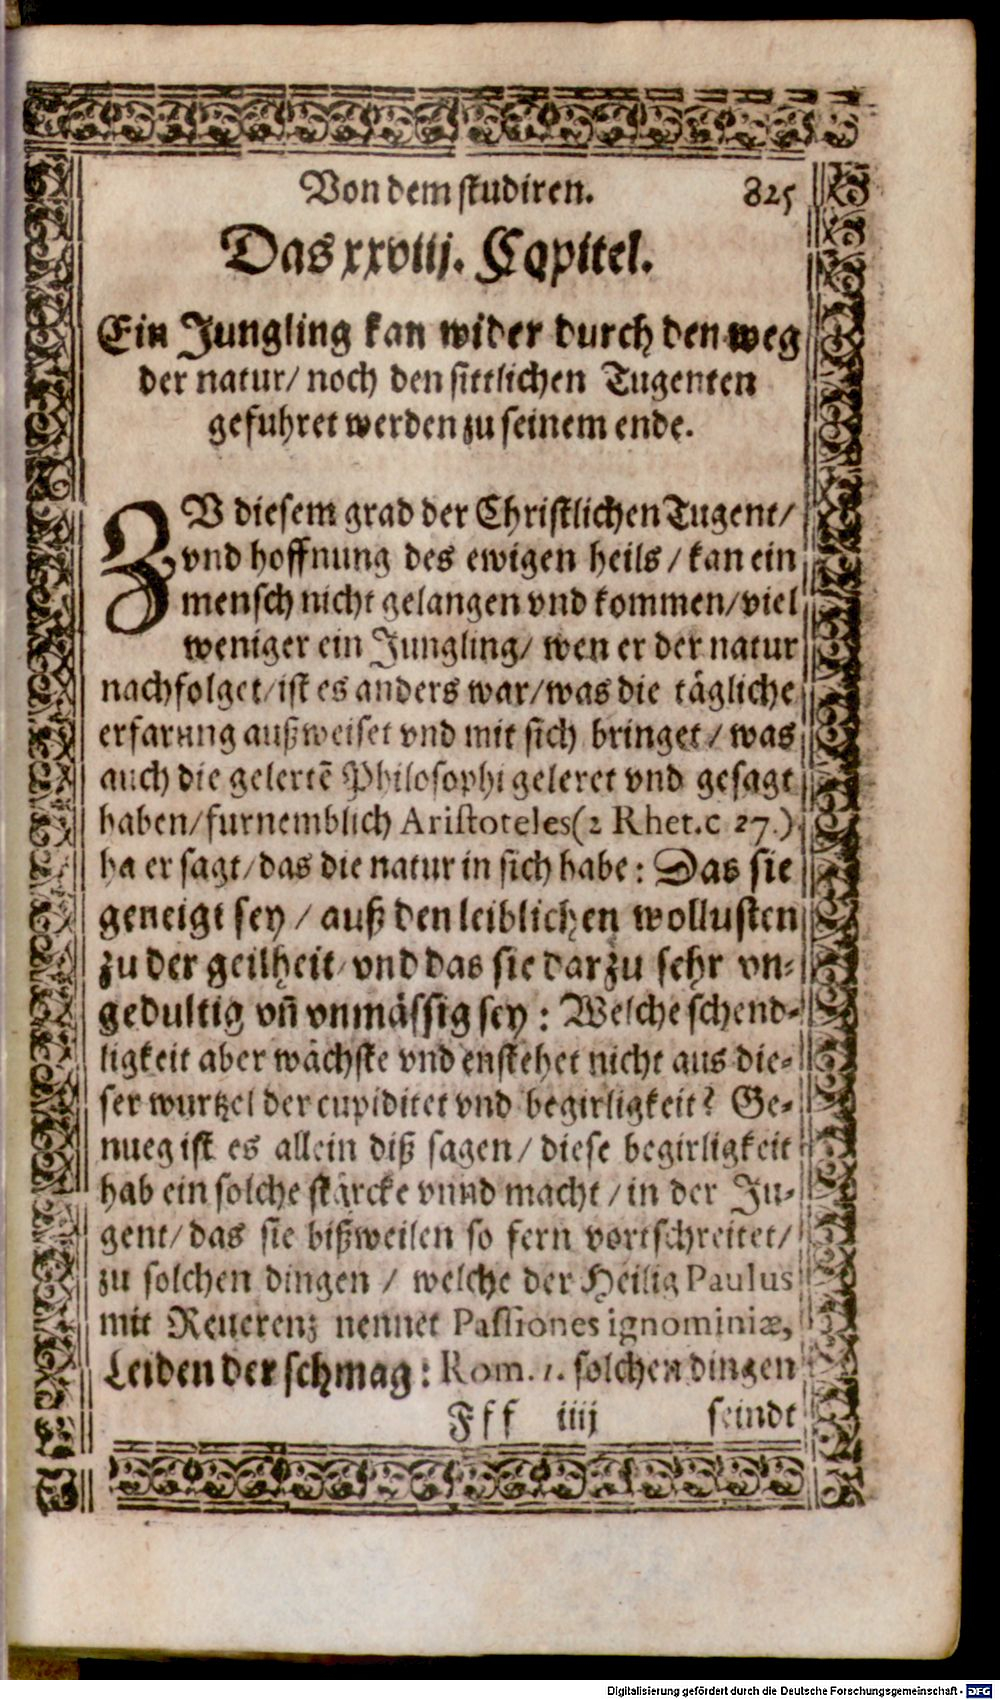 Von dem studiren. 825
Das xxviij. Capitel.
Ein Jungling kan wider durch den weg
der natur/ noch den sittlichen Tugenten
gefuhret werden zu seinem ende.
ZV diesem grad der Christlichen Tugent/
vnd hoffnung des ewigen heils / kan ein
mensch nicht gelangen vnd kommen/ viel
weniger ein Jungling/ wen er der natur
nachfolget/ ist es anders war/ was die tägliche
erfarung außweiset vnd mit sich bringet / was
auch die gelertē Philosophi geleret vnd gesagt
haben/ furnemblich Aristoteles (2 Rhet. c 27.)
ha er sagt/ das die natur in sich habe: Das sie
geneigt sey / auß den leiblichen wollusten
zu der geilheit/ vnd das sie darzu sehr vn-
gedultig vn̄ vnmässig sey: Welche schend-
ligkeit aber wächste vnd enstehet nicht aus die-
ser wurtzel der cupiditet vnd begirligkeit? Ge-
nueg ist es allein diß sagen/ diese begirligkeit
hab ein solche stärcke vnnd macht / in der Ju-
gent/ das sie bißweilen so fern vortschreitet/
zu solchen dingen / welche der Heilig Paulus
mit Reuerenz nennet Passiones ignominiæ,
Leiden der schmag: Rom. 1. solchen dingen
Fff iiij seindt
Digitalisierung gefördert durch die Deutsche Forschungsgemeinschaft - DFG